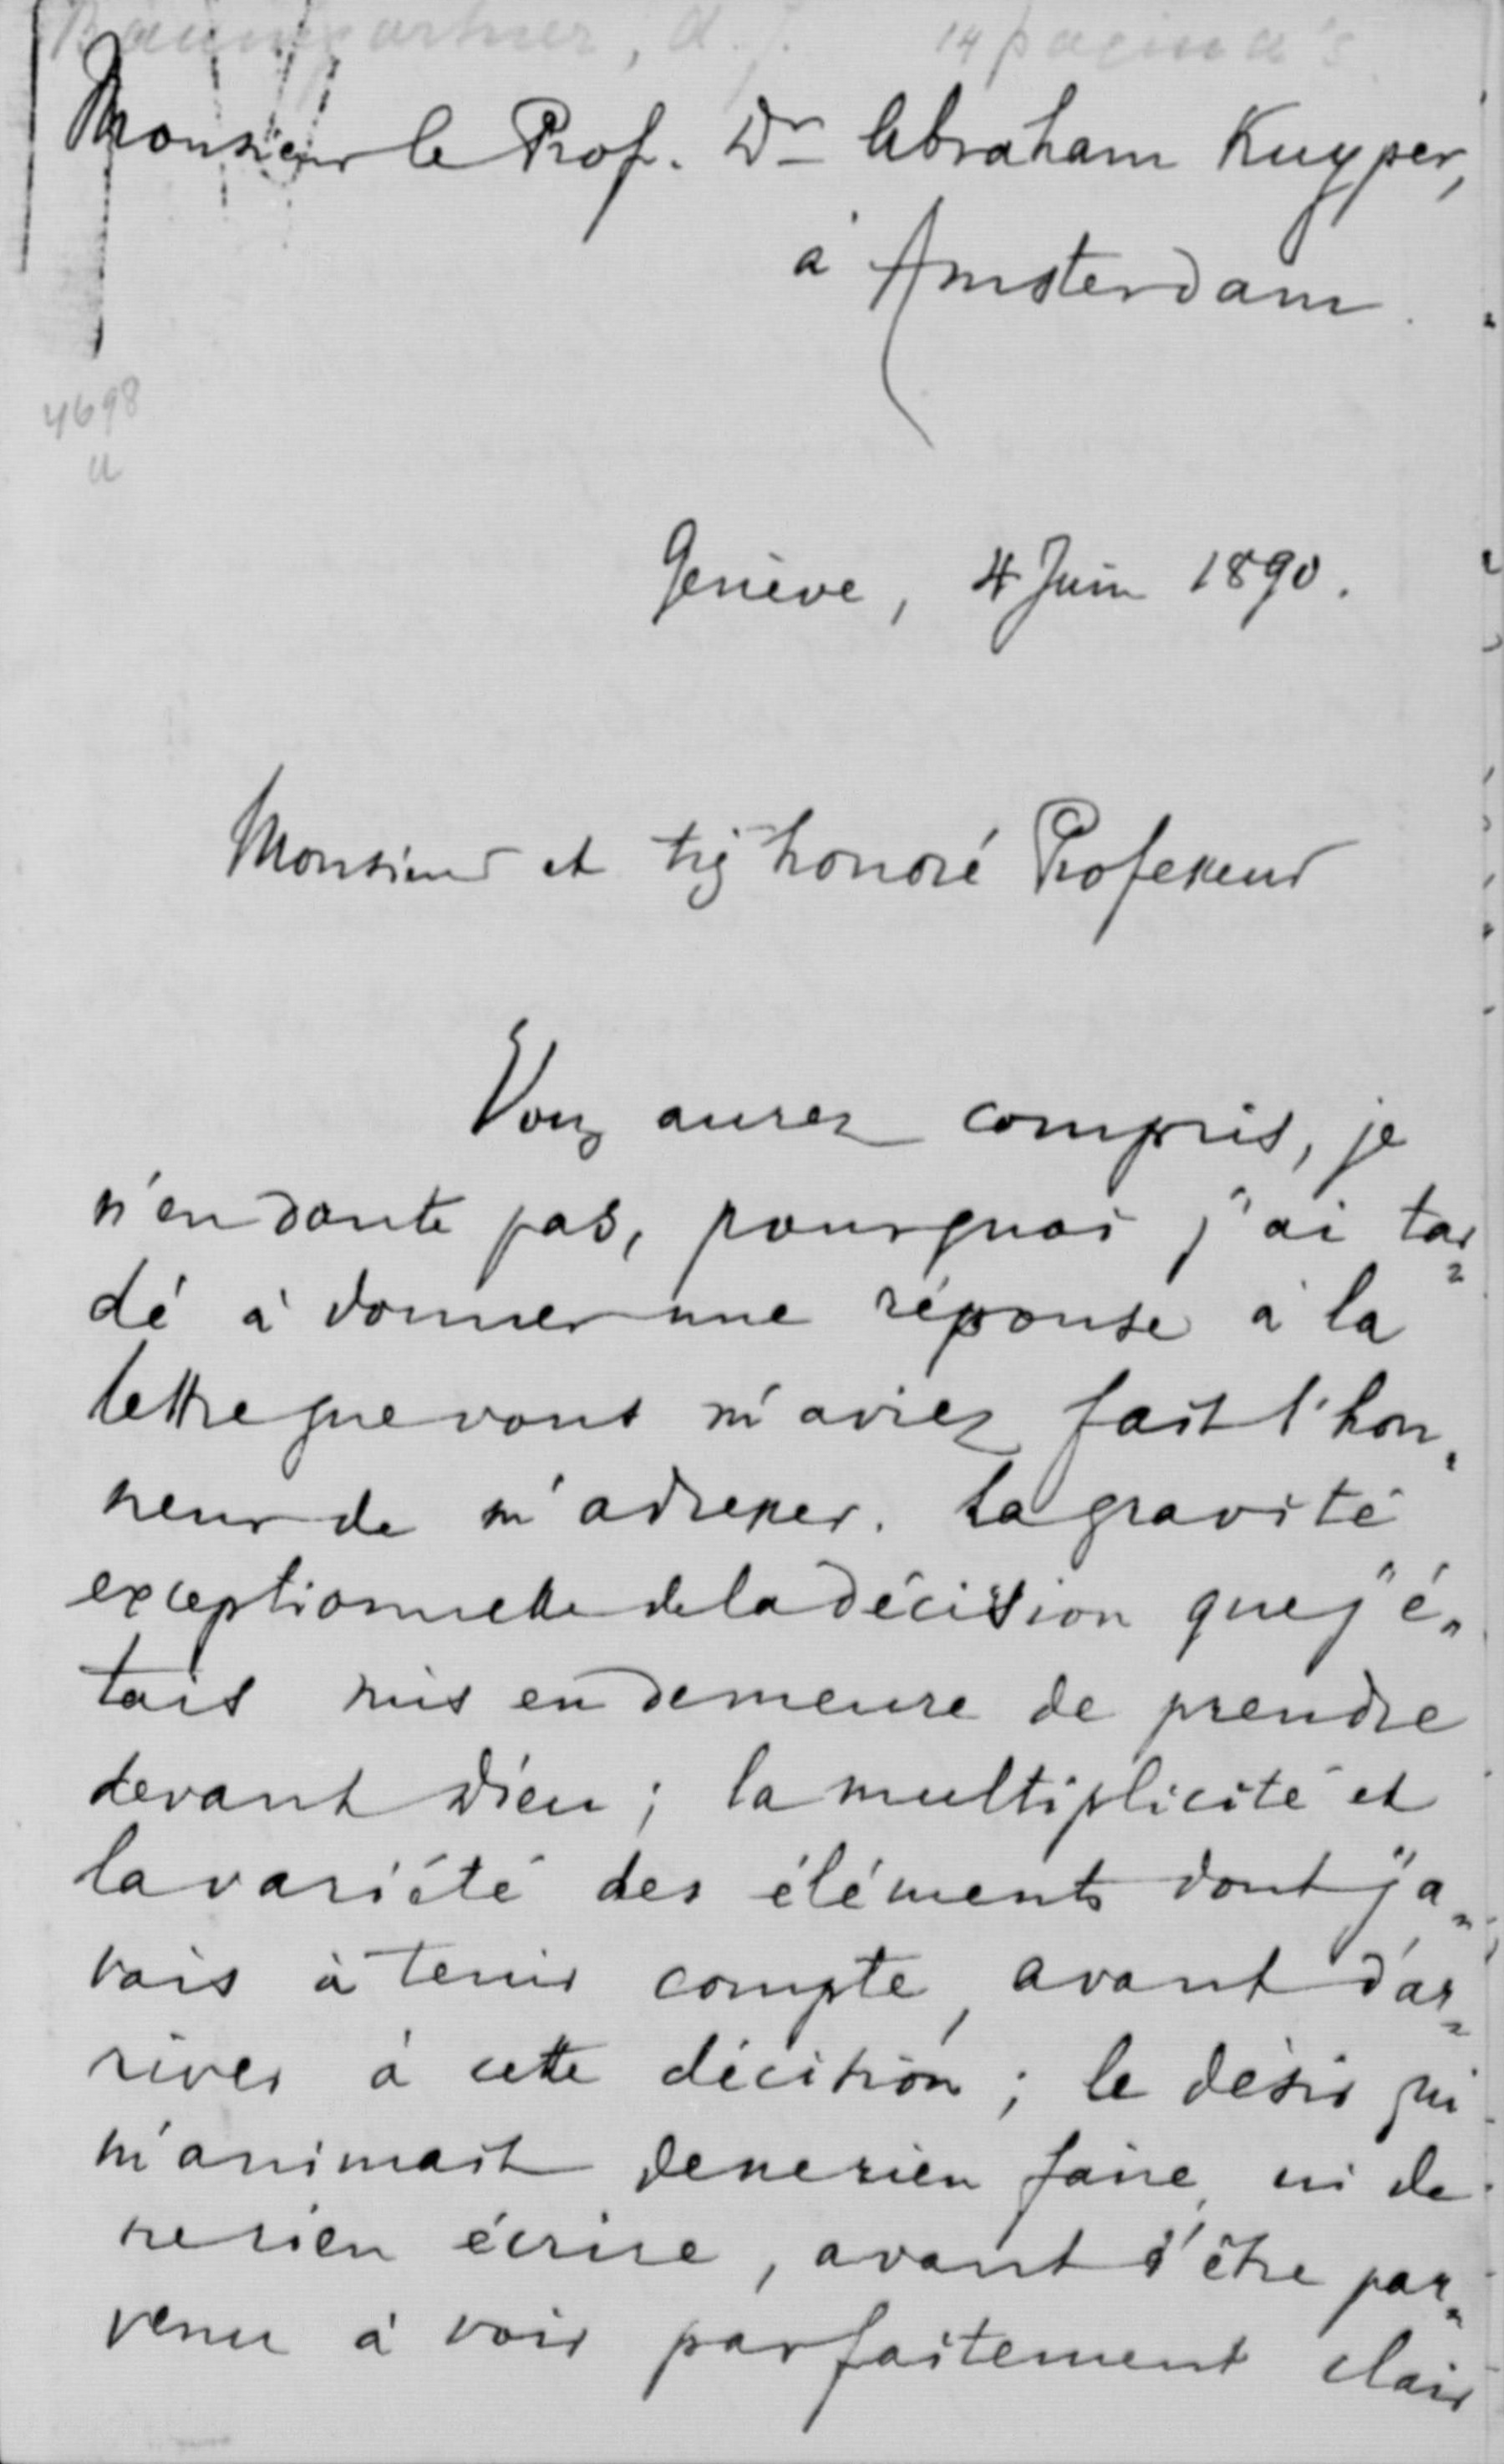 Baumgartner, A. J. 14 pagina's
Monsieur le Prof. Dr Abraham Kuyper,
à Amsterdam.
4698
u
Genève, 4 Juin 1890.
Monsieur et très honoré Professeur
Vous aurez compris, je
n'en doute pas, pourquoi j'ai tar=
dé à donner une réponse à la
lettre que vous m'aviez fait l'hon=
neur de m'adresser. La gravité
exceptionnelle de la décision que j'é=
tais mis en demeure de prendre
devant Dieu; la multiplicité et
la variété des éléments dont j'a=
vais à tenir compte, avant d'ar=
river à cette décision; le désir qui
m'animait de ne rien faire, ni de
ne rien écrire, avant d'être par=
venu à voir parfaitement clair